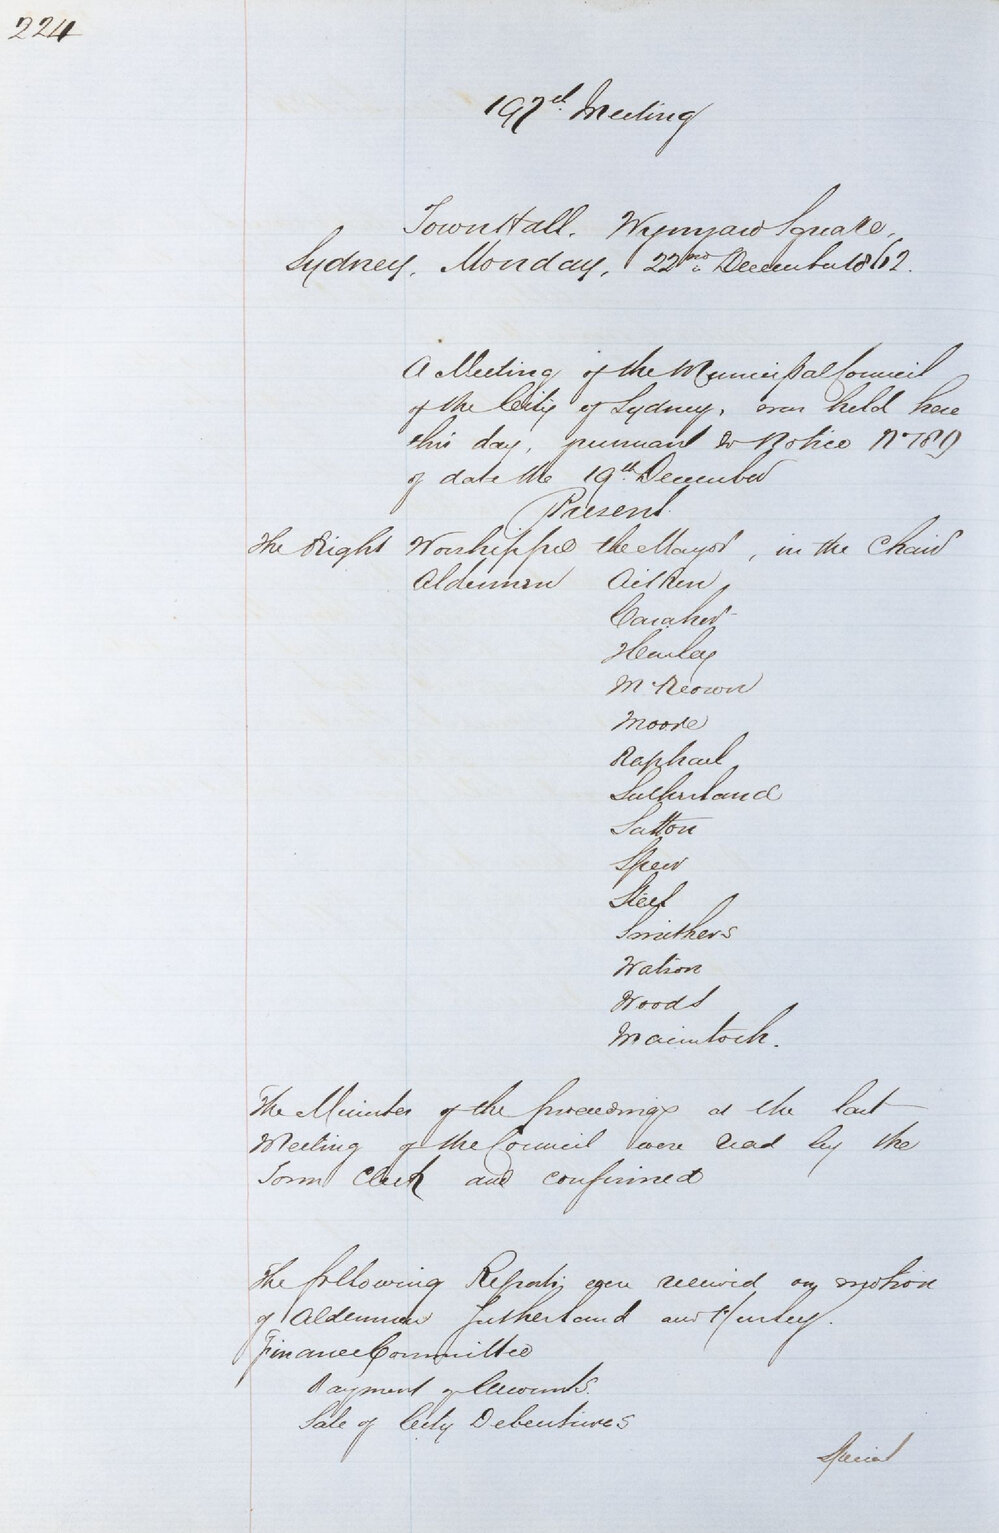 224
197th Meeting
Town Hall. Wynyard Square,
Sydney, Monday, 22nd December 1862.
A Meeting of the Municipal Council
of the City of Sydney, was held here
this day, pursuant to Notice No 789
of date the 19th December
Present.
The Right Worshipful the Mayor, in the Chair
Aldermen Aitken
Caraher
Hurley
McKeown
Moore
Raphael
Sutherland
Sutton
Speer
Steel
Smithers
Watson
Woods
Macintosh.
The Minutes of the proceedings at the last
Meeting of the Council were read by the
Town Clerk and confirmed
The following Reports were received on motion
of Aldermen Sutherland and Hurley.
Finance Committee
Payment of Accounts.
Sale of City Debentures
Special